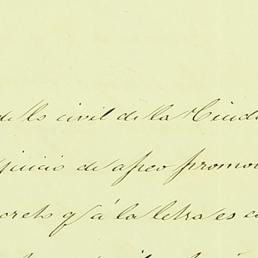 de lo civil de la Ciud
juicio de apeo promo
creto q.' á la letra es c